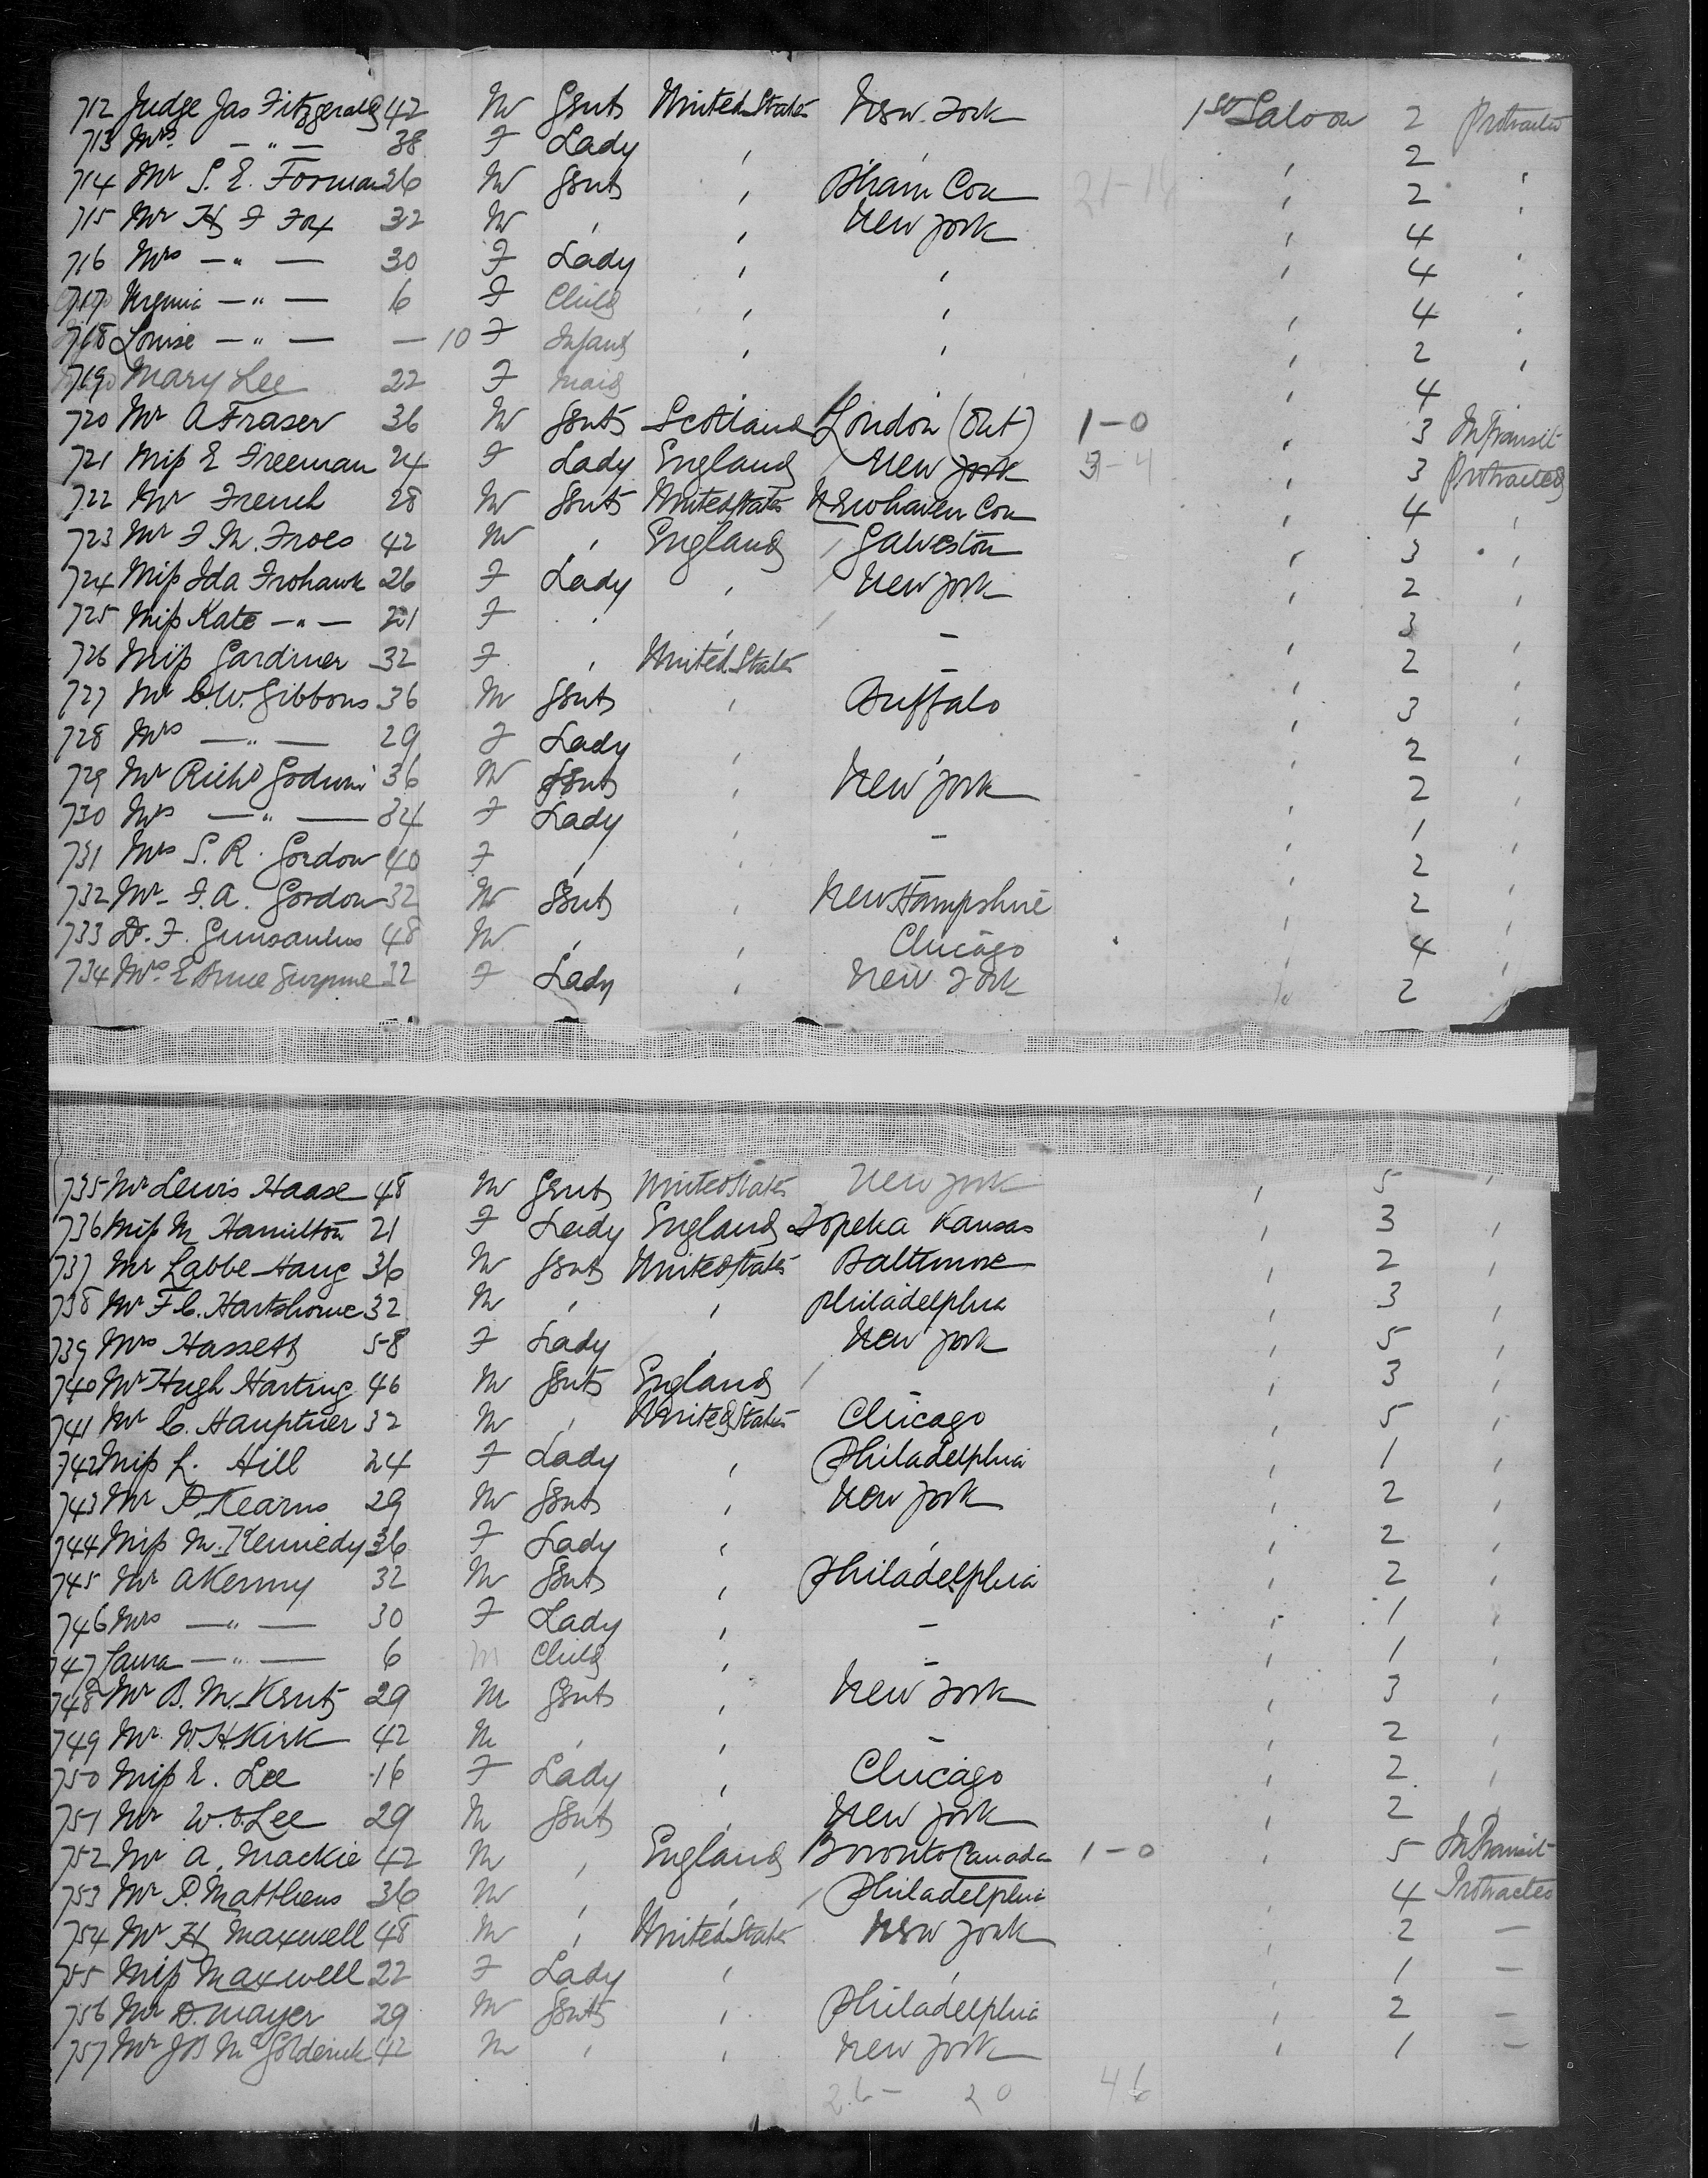 712 Judge Jas Fitzgerald 42 M Gent United States New York 1st Saloon 2 Protracted
713 Mrs — " — 38 F Lady ' ' 2
714 Mr S. E. Forman 26 M Gent ' Bham Con ' 2 '
715 Mr H F Fox 32 M ' ' New York ' 4 '
716 Mrs — " — 30 F Lady ' ' ' 4 '
717 Virginia — " — 6 F Child ' ' 4 '
718 Louise — " — — 10 F Infant ' ' ' 2 '
719 Mary Lee 22 F Maid ' 4 '
720 Mr A Fraser 36 M Gent Scotland London (Ont) 1-0 ' 3 In Transit
721 Miss E Freeman 24 F Lady England New York 3-4 ' 3 Protracted
722 Mr French 28 M Gent United States Newhaven Con ' 4 '
723 Mr F. M. Froes 42 M ' England Galveston ' 3 '
724 Miss Ida Frohawk 26 F Lady ' New York ' 2 '
725 Miss Kate — " — 21 F ' ' — 3 '
726 Miss Gardiner 32 F ' United States — ' 2 '
727 Mr C. W. Gibbons 36 M Gent ' Buffalo ' 3 '
728 Mrs — " — 29 F Lady ' ' ' 2 '
729 Mr Richd Godwin 36 M Gent ' New York ' 2 '
730 Mrs — " — 34 F Lady ' — ' 1 '
731 Mrs S. R. Gordon 40 F ' ' — ' 2 '
732 Mr F. A. Gordon 32 M Gent ' New Hampshire ' 2 '
733 Dr. F. Gunsaulus 48 M ' ' Chicago ' 4 '
734 Mrs E 32 F Lady ' New York 2 '
735 Mr Lewis Haase 48 M Gent United States New York ' 5 '
736 Miss M Hamilton 21 F Lady England Topeka Kansas ' 3 '
737 Mr Labbe Haug 36 M Gent United States Baltimore ' 2 '
738 Mr F C. Hartshorne 32 M ' ' Philadelphia ' 3 '
739 Mrs Hassett 58 F Lady ' New York ' 5 '
740 Mr Hugh Harting 46 M Gent England ' 3 '
741 Mr C. Hauptner 32 M ' United States Chicago ' 5 '
742 Miss L. Hill 24 F Lady ' Philadelphia ' 1 '
743 Mr P. Kearns 29 M Gent ' New York ' 2 '
744 Miss M. Kennedy 36 F Lady ' ' ' 2 '
745 Mr A Kenny 32 M Gent ' Philadelphia ' 2 '
746 Mrs — " — 30 F Lady ' — ' 1 '
747 Laura — " — 6 M Child ' — ' 1 '
748 Mr B. M. Krutz 29 M Gent ' New York ' 3 '
749 Mr W. H Kirk 42 M ' ' — ' 2 '
750 Miss E. Lee 16 F Lady ' Chicago ' 2 '
751 Mr W. O. Lee 29 M Gent ' New York ' 2
752 Mr A. Mackie 42 M ' England Toronto Canada 1-0 ' 5 In Transit
753 Mr P. Matthews 36 M ' ' Philadelphia ' 4 Protracted
754 Mr H Maxwell 48 M ' United States New York ' 2 —
755 Miss Maxwell 22 F Lady ' ' ' 1 —
756 Mr D. Mayer 29 M Gent ' Philadelphia ' 2 —
757 Mr J B McGolderick 42 M ' ' New York ' 1 —
26 — 20 46